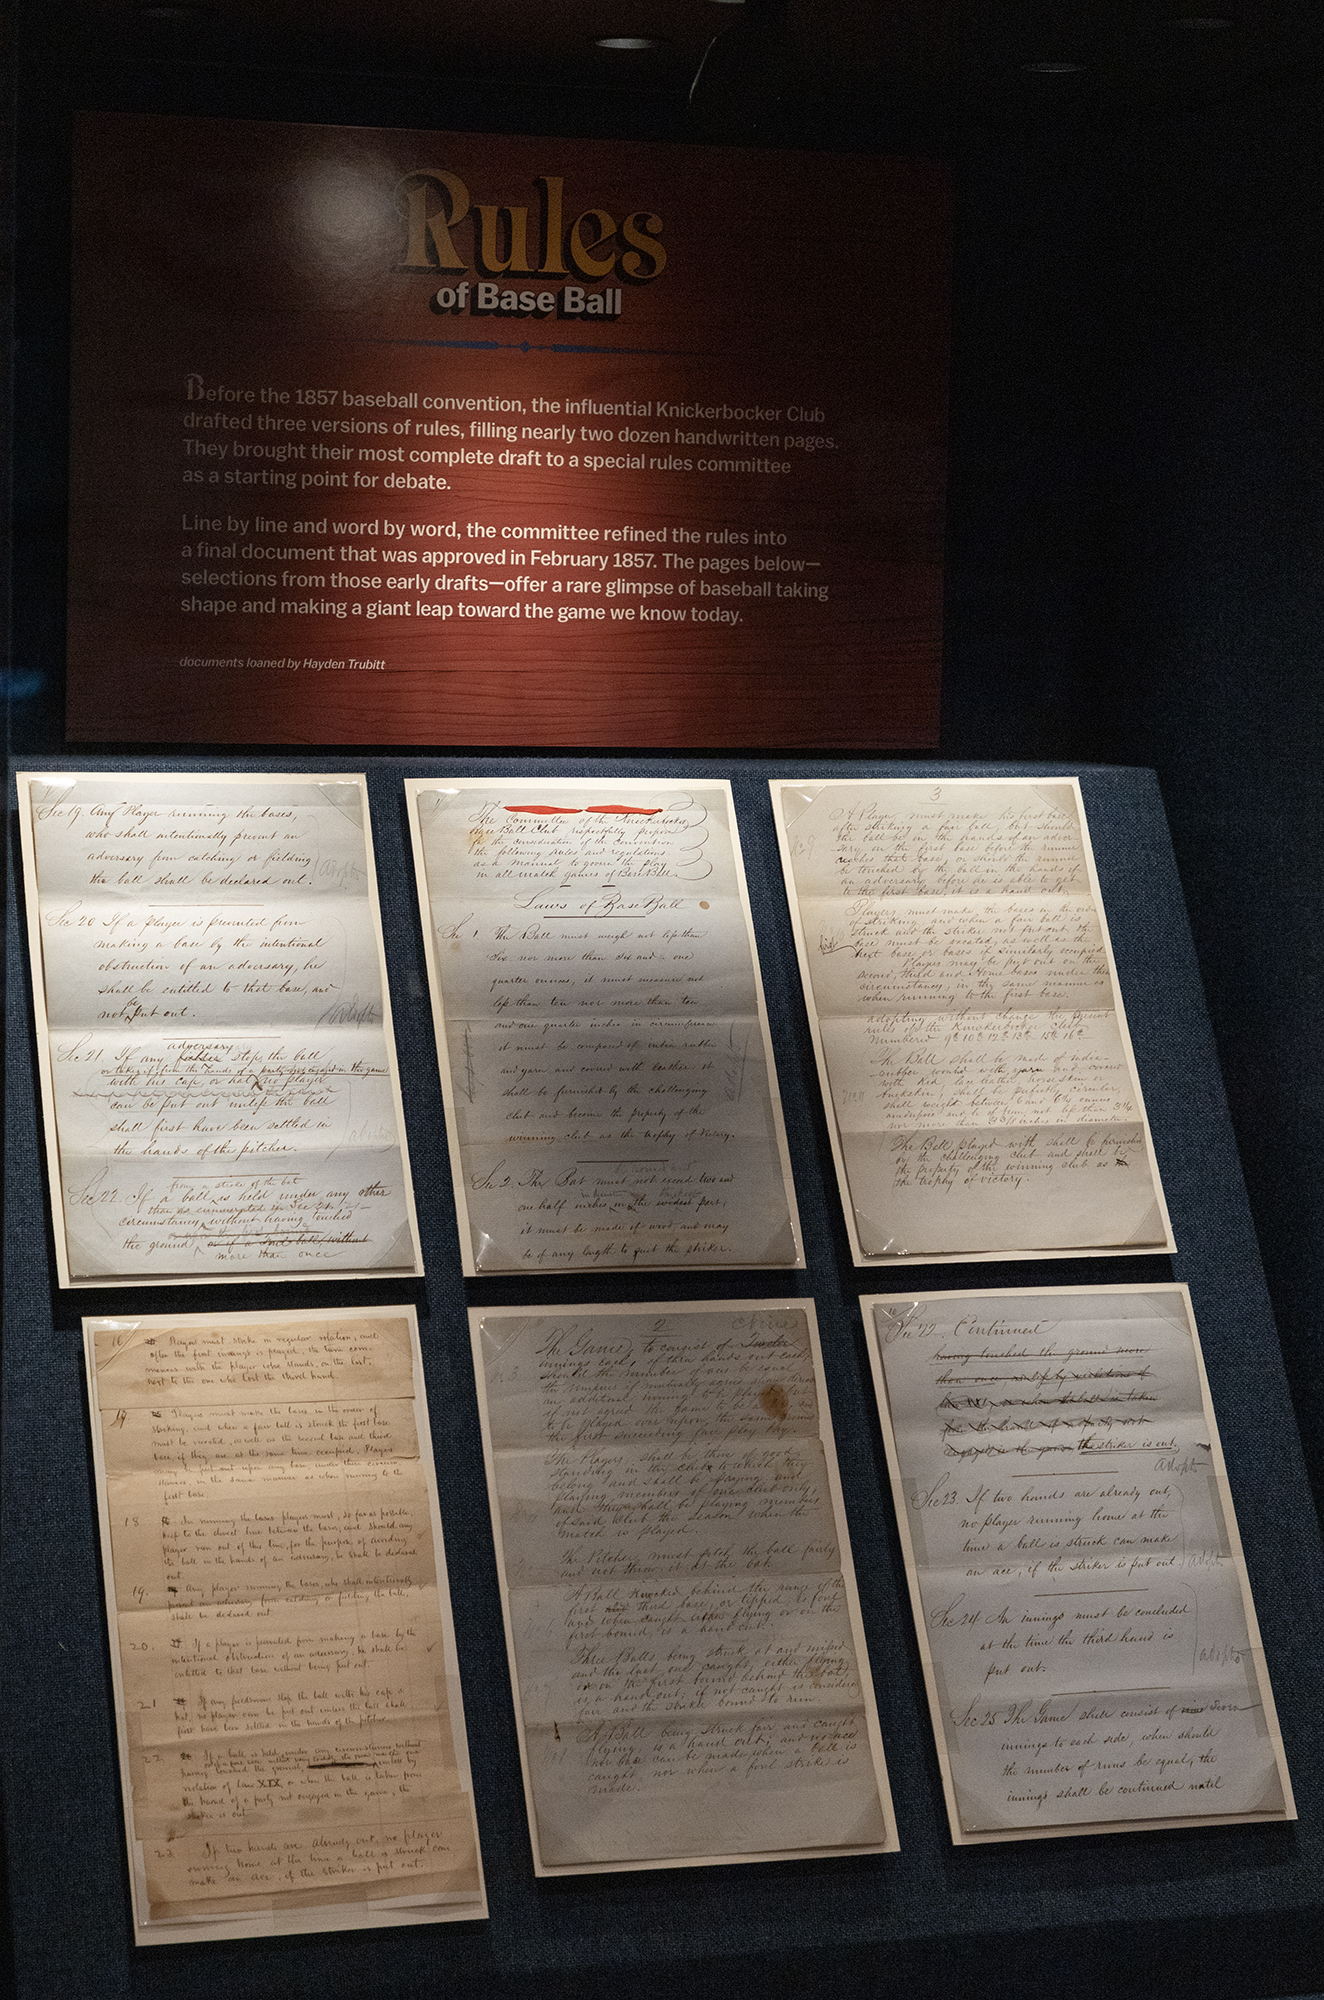 Rules
of Base Ball
Before the 1857 baseball convention, the influential Knickerbocker Club
drafted three versions of rules, filling nearly two dozen handwritten pages.
They brought their most complete draft to a special rules committee
as a starting point for debate.
Line by line and word by word, the committee refined the rules into
a final document that was approved in February 1857. The pages below—
selections from those early drafts—offer a rare glimpse of baseball taking
shape and making a giant leap toward the game we know today.
documents loaned by Hayden Trubitt
Sec 19. Any Player running the bases,
who shall intentionally prevent an
adversary from catching or fielding
the ball shall be declared out.
adopt
Sec 20 If a Player is prevented from
making a base by the intentional
obstruction of an adversary, he
shall be entitled to that base, and
be
not put out.
adversary
Sec 21. If any fielder stops the ball
or takes it from the hands of a party not engaged in the game
with his cap, or hat, no player
can be put out unless the ball
shall first have been settled in
the hands of the pitcher.
from a stroke of the bat
Sec 22. If a ball is held under any other
than as enumerated in Sec 21
circumstances, without having touched
the ground, or if a foul ball, without
more than once
The Committee of the Knickerbocker
Base Ball Club respectfully propose
to the consideration of the convention
the following rules and regulations
as a manual to govern the play
in all match games of Base Ball.
Laws of Base Ball
Sec 1. The Ball must weigh not less than
six nor more than six and one
quarter ounces, it must measure not
less than ten nor more than ten
and one quarter inches in circumference
it must be composed of india rubber
and yarn and covered with leather. it
shall be furnished by the challenging
club and become the property of the
winning club as the trophy of victory.
be round and
Sec 2. The Bat must not exceed two and
one half inches in the widest part,
it must be made of wood, and may
be of any length to suit the striker.
3
A Player must make his first base
after striking a fair ball, but should
the ball be in the hands of an adver
sary on the first base before the runner
reaches that base, or should the runner
be touched by the ball in the hands of
an adversary before he is able to get
to the first base, it is a hand out.
Players must make the bases in the order
of striking, and when a fair ball is
struck and the striker not put out the
first
base must be vacated, as well as the
next base or bases if similarly occupied
Players may be put out on the
second, third and Home bases under the
circumstances, in the same manner as
when running to the first base.
adopting without change the present
rules of the Knickerbocker Club
numbered 9th 10th 12th 13th 15th 16th
The Ball shall be made of india-
rubber, wound with yarn and cover
with
buckskin, shall be perfectly circular,
shall weigh between 6 and 6¼ ounces
nor more than
The Ball played with shall be furnished
by the challenging club and shall be
the property of the winning club as
the trophy of victory.
16 Players must strike in regular rotation, and
after the first innings is played, the turn com-
mences with the player who stands on the list,
next to the one who lost the third hand.
17. Players must make the bases in the order of
striking, and when a fair ball is struck the first base
must be vacated, as also the second base and third
base if they are at the same time occupied. Players
may be put out upon any base under these circum
stances, in the same manner as when running to the
first base.
18 In running the bases players must, so far as possible,
keep to the direct line between the bases, and should any
player run out of this line, for the purpose of avoiding
the ball in the hands of an adversary, he shall be declared
out.
19. Any player running the bases, who shall intentionally
prevent an adversary from catching or fielding the ball,
shall be declared out.
20. If a player is prevented from making a base by the
intentional obstruction of an adversary, he shall be
entitled to that base without being put out.
21 If any fieldsman stop the ball with his cap or
hat, no player can be put out unless the ball shall
first have been settled in the hands of the pitcher
22 If a ball is held under any circumstances without
having touched the ground,
violation of law XIX, or when the ball is taken from
the hands of a party not engaged in the game, the
striker is out.
23 If two hands are already out, no player
running home at the time a ball is struck can
make an ace, if the striker is put out.
2
The Game to consist of Twelve
innings each,
should the number of runs be equal
if not agreed the game to be
to be played over upon the same grounds
the first succeeding fair play day.
The Players shall be those of good
standing in the club to which they
belong and shall be playing and
playing members of one club only,
and they shall be playing members
of said Club the season when the
match is played.
The Pitcher must pitch the ball fairly
and not throw it at the bat.
A Ball knocked behind the range of the
first and third base, or tipped, is foul
and when caught either flying or on the
first bound, is a hand out.
Three Balls being struck at and missed
and the last one caught, either flying
or on the first bound behind the bat,
is a hand out; if not caught is considered
fair and the striker bound to run.
A Ball being struck fair and caught
flying is a hand out; and no ace
nor base can be made when a ball is
caught, nor when a foul strike is
made.
10
Sec 22. Continued
having touched the ground more
the striker is out.
adopt
Sec 23. If two hands are already out,
no player running home at the
time a ball is struck can make
an ace, if the striker is put out
adopt
Sec 24 An innings must be concluded
at the time the third hand is
put out.
adopt
Sec 25 The Game shall consist of nine Seven
innings to each side, when should
the number of runs be equal, the
innings shall be continued until